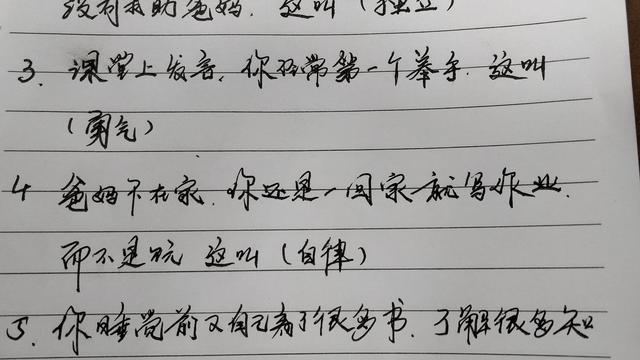 没有求助爸妈. 这叫 (独立)
3. 课堂上发言, 你经常第一个举手. 这叫
(勇气)
4 爸妈不在家. 你还是一回家就写作业.
而不是玩 这叫 (自律)
5. 你睡觉前又自己看了很多书. 了解很多知